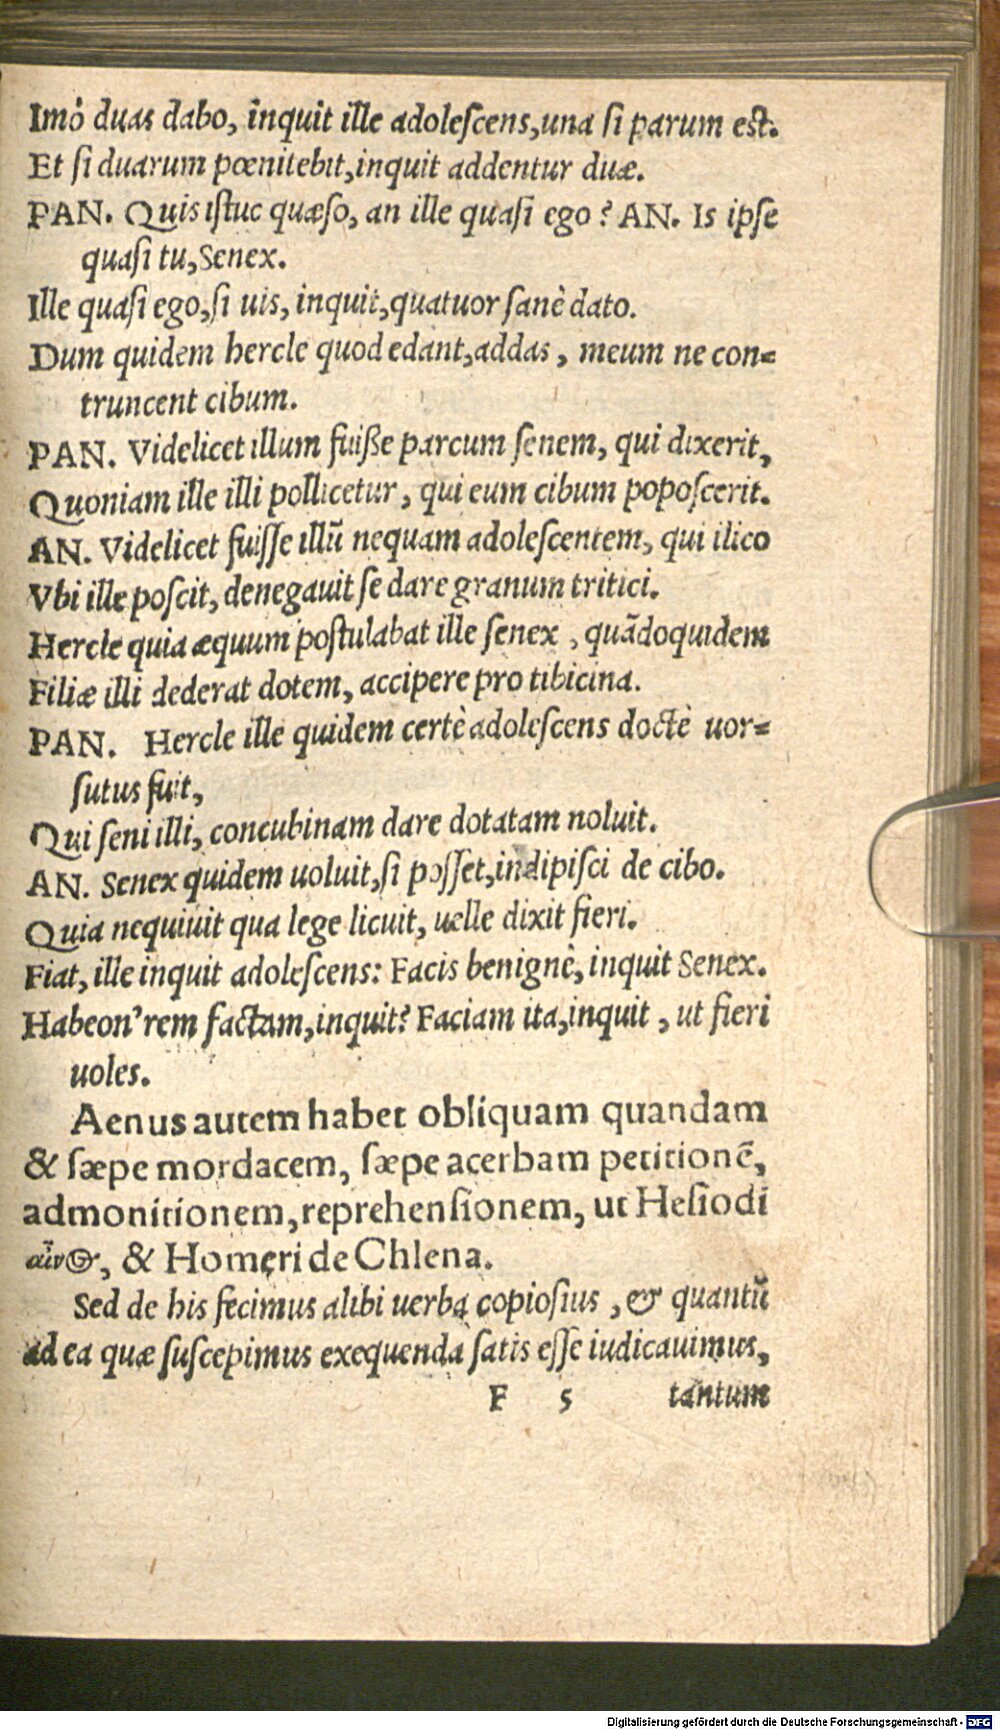 Imò duas dabo, inquit ille adolescens, una si parum est.
Et si duarum pœnitebit, inquit addentur duæ.
PAN. Quis istuc quæso, an ille quasi ego? AN. Is ipse
quasi tu, Senex.
Ille quasi ego, si uis, inquit, quatuor sanè dato.
Dum quidem hercle quod edant, addas, meum ne con=
truncent cibum.
PAN. Videlicet illum fuiße parcum senem, qui dixerit,
Quoniam ille illi pollicetur, qui eum cibum poposcerit.
AN. Videlicet fuisse illũ nequam adolescentem, qui ilico
Vbi ille poscit, denegauit se dare granum tritici.
Hercle quia æquum postulabat ille senex, quãdoquidem
Filiæ illi dederat dotem, accipere pro tibicina.
PAN. Hercle ille quidem certè adolescens doctè uor=
sutus fuit,
Qui seni illi, concubinam dare dotatam noluit.
AN. Senex quidem uoluit, si posset, indipisci de cibo.
Quia nequiuit qua lege licuit, uelle dixit fieri.
Fiat, ille inquit adolescens: Facis benignè, inquit Senex.
Habeon' rem factam, inquit? Faciam ita, inquit, ut fieri
uoles.
Aenus autem habet obliquam quandam
& sæpe mordacem, sæpe acerbam petitionẽ,
admonitionem, reprehensionem, ut Hesiodi
αἶνος, & Homeri de Chlena.
Sed de his fecimus alibi uerba copiosius, & quantũ
ad ea quæ suscepimus exequenda satis esse iudicauimus,
F 5 tantum
Digitalisierung gefördert durch die Deutsche Forschungsgemeinschaft - DFG